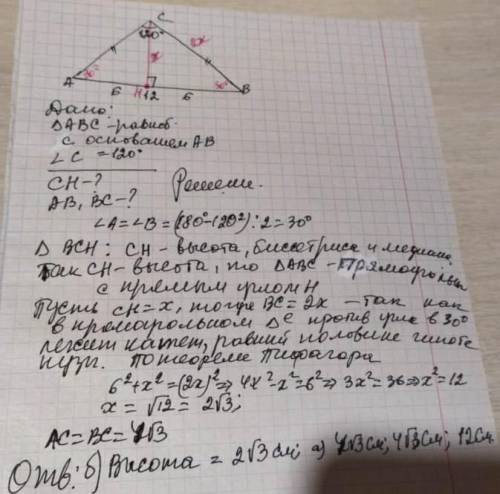 C
120°
2x
x
A
30°
6
H
12
6
30°
B
Дано:
ΔABC - равноб.
с основанием AB
∠C = 120°
CH - ?
AB, BC - ?
Решение.
∠A = ∠B = (180° - 120°) : 2 = 30°
Δ BCH : CH - высота, биссектриса и медиана.
Так CH - высота, то ΔABC - прямоугольн
с прямым углом H
Пусть CH = x, тогда BC = 2x - так как
в прямоугольном Δе против угла в 30°
лежит катет, равный половине гипоте
нузы. По теореме Пифагора
6² + x² = (2x)² ⇒ 4x² - x² = 6² ⇒ 3x² = 36 ⇒ x² = 12
x = √12 = 2√3;
AC = BC = 4√3
Отв: б) Высота = 2√3 см; а) 4√3 см; 4√3 см; 12 см.